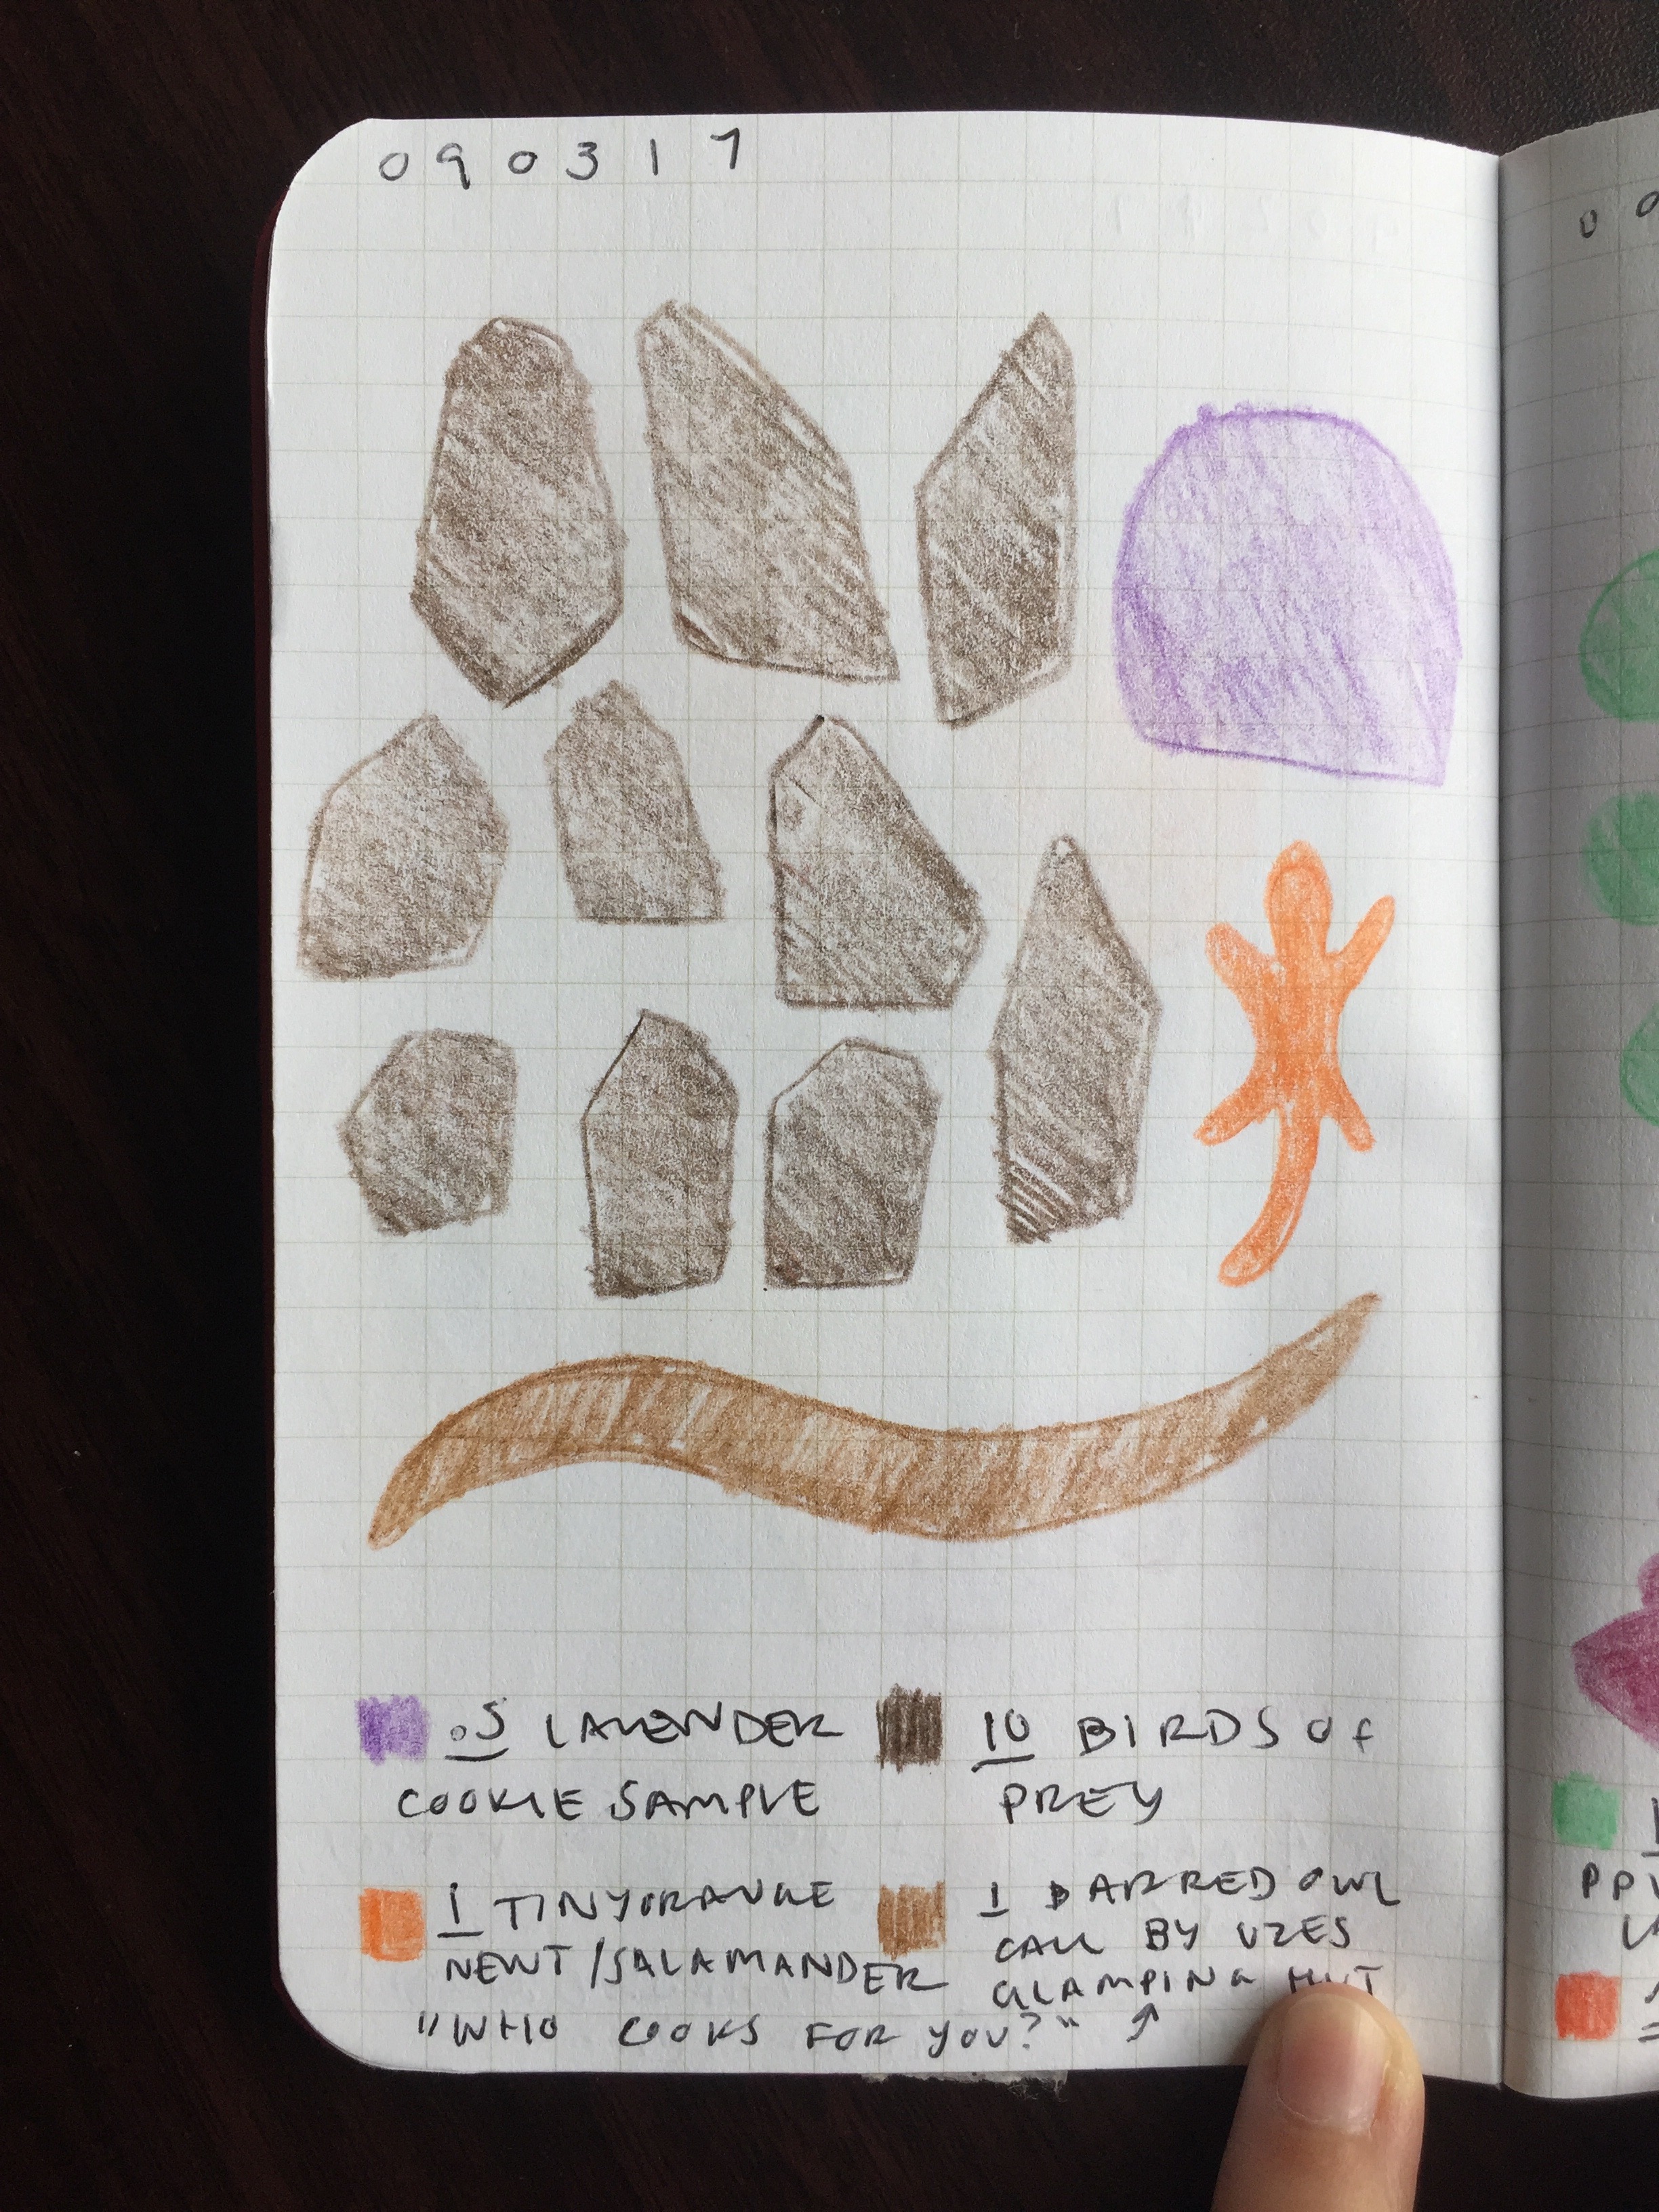 090317
.5 LAVENDER
COOKIE SAMPLE
10 BIRDS OF
PREY
1 TINY ORANGE
NEWT/SALAMANDER
1 BARRED OWL
CALL BY
GLAMPING HUT
"WHO COOKS FOR YOU?"